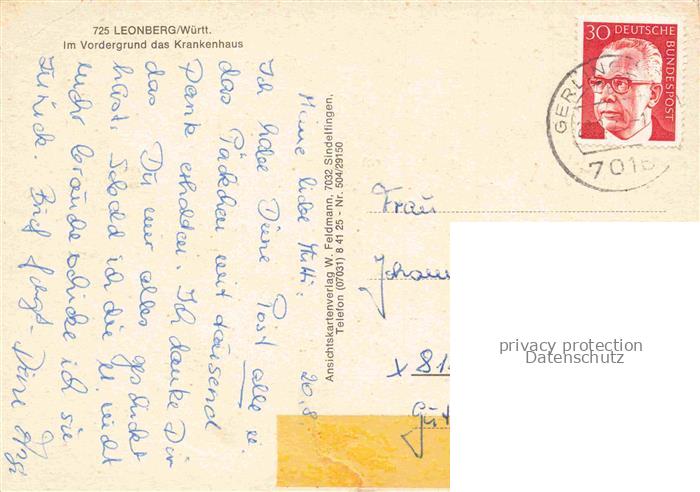 725 LEONBERG/Württ.
Im Vordergrund das Krankenhaus
20.8.
Meine liebe Mutti:
Ich habe Deine Post alle u.
das Päckchen mit tausend
Dank erhalten. Ich danke Dir
das Du mir alles geschickt
hast. Sobald ich die nicht
mehr brauche schicke ich sie
zurück. Brief folgt - Deine
Ansichtskartenverlag W. Feldmann, 7032 Sindelfingen,
Telefon (07031) 8 41 25 - Nr. 504/29150
30 DEUTSCHE
BUNDESPOST
GERLING
7016
Frau
Johann
x 81
Güt
privacy protection
Datenschutz